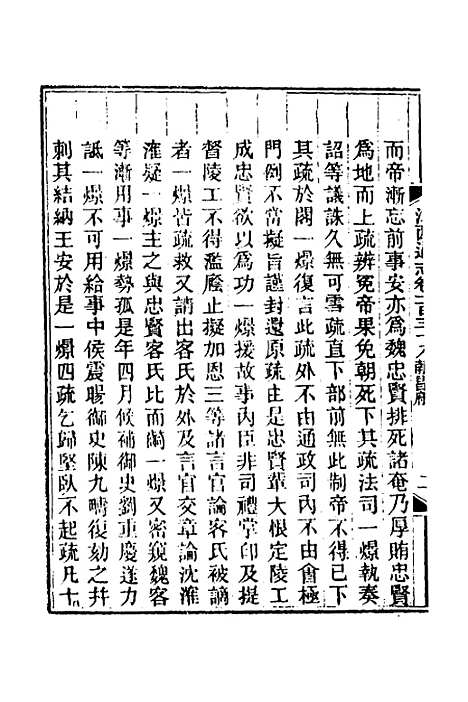 而帝漸忘前事安亦爲魏忠賢排死諸奄乃厚賄忠賢
爲地而上疏辨冤帝果免朝死下其疏法司一燝執奏
詔等議誅久無可雪疏直下部前無此制帝不得已下
其疏於閣一燝復言此疏外不由通政司內不由會極
門倒不當擬旨謹封還原疏由是忠賢輩大根定陵工
成忠賢欲以爲功一燝援故事內臣非司禮掌印及提
督陵工不得濫廕止擬加恩三等諸言官論客氏被謫
者一燝皆疏救又請出客氏於外及言官交章論沈㴶
㴶疑一燝主之與忠賢客氏比而齮一燝又密窺魏客
等漸用事一燝勢孤是年四月候補御史劉重慶遂力
詆一燝不可用給事中侯震暘御史陳九疇復劾之幷
刺其結納王安於是一燝四疏乞歸堅臥不起疏凡十
江西通志卷一百三十八 南昌府 二